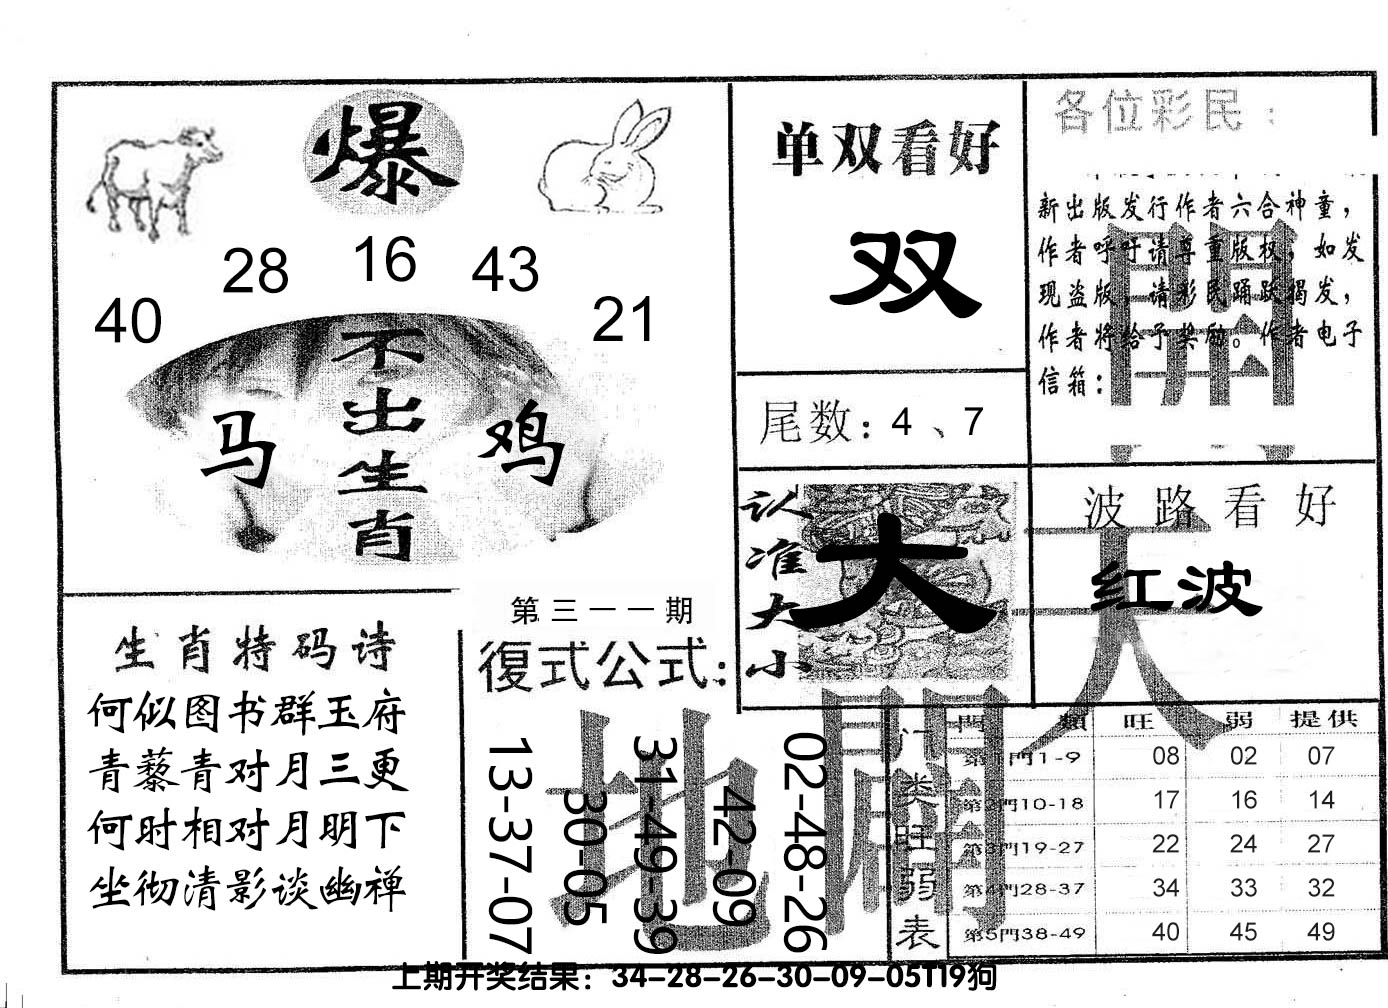 爆
28 16 43
40 21
不出生肖
马 鸡
单双看好
双
尾数：4、7
各位彩民：
新出版发行作者六合神童，
作者呼吁请尊重版权，如发
现盗版，请彩民踊跃揭发，
作者将给予奖励。作者电子
信箱：
認准大小
大
波路看好
红波
生肖特码诗
何似图书群玉府
青藜青对月三更
何时相对月明下
坐彻清影谈幽禅
第三一一期
復式公式：
13-37-07
30-05
31-49-39
42-09
02-48-26
天
地
開
闢
门类旺弱表
門類 旺 弱 提供
第1門1-9 08 02 07
第2門10-18 17 16 14
第3門19-27 22 24 27
第4門28-37 34 33 32
第5門38-49 40 45 49
上期开奖结果：34-28-26-30-09-05T19狗